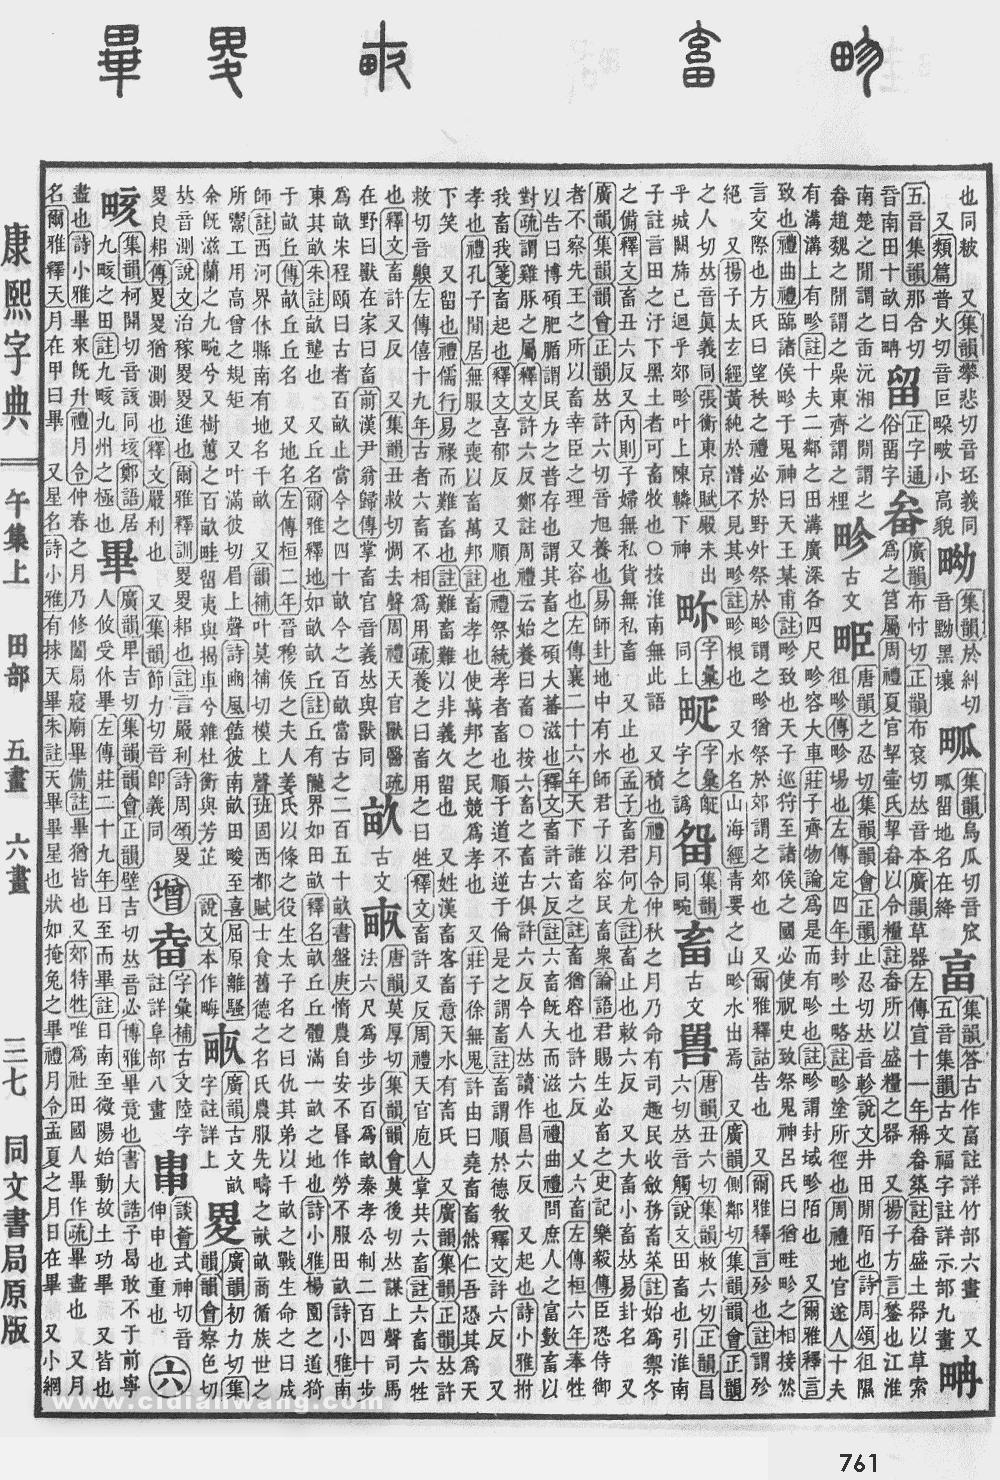 畛 畜 畞 畟 畢
也同耚 又集韻攀悲切音坯義同
又類篇普火切音叵㽎畯小高貌
集韻於糾切
音黝黑壤
集韻烏瓜切音窊
㼌留地名在絳
畐
集韻答古作畐註詳竹部六畫 又
五音集韻古文福字註詳示部九畫
五音集韻那含切
音南田十畝曰
留
正字通
俗畱字
畚
廣韻布忖切正韻布袞切𠀤音本廣韻草器左傳宣十一年稱畚築註畚盛土器以草索
爲之筥屬周禮夏官挈壷氏挈畚以令糧註畚所以盛糧之器 又揚子方言𦈢也江淮
南楚之閒謂之畚沅湘之閒謂之
畚趙魏之閒謂之喿東齊謂之梩
畛
古文
𤰞
唐韻之忍切集韻韻會正韻止忍切𠀤音軫說文井田閒陌也詩周頌徂隰
徂畛傳畛場也左傳定四年封畛土略註畛塗所徑也周禮地官遂人十夫
有溝溝上有畛註十夫二鄰之田溝廣深各四尺畛容大車莊子齊物論爲是而有畛也註畛謂封域畛陌也 又爾雅釋言
致也禮曲禮臨諸侯畛于鬼神曰天王某甫註畛致也天子巡狩至諸侯之國必使祝史致祭鬼神呂氏曰猶畦畛之相接然
言交際也方氏曰望秩之禮必於野外祭於畛謂之畛猶祭於郊謂之郊也 又爾雅釋詁告也 又爾雅釋言殄也註謂殄
絕 又揚子太玄經黃純於潛不見其畛註畛根也 又水名山海經青要之山畛水出焉 又廣韻側鄰切集韻韻會正韻
之人切𠀤音眞義同張衡東京賦殿未出
乎城闕旆已迴乎郊畛叶上陳轔下神
字彙
同上
字彙
字之譌
集韻
同畹
畜
古文
嘼
唐韻丑六切集韻敕六切正韻昌
六切𠀤音觸說文田畜也引淮南
子註言田之汙下黑土者可畜牧也○按淮南無此語 又積也禮月令仲秋之月乃命有司趣民收斂務畜菜註始爲禦冬
之備釋文畜丑六反又內則子婦無私貨無私畜 又止也孟子畜君何尤註畜止也敕六反 又大畜小畜𠀤易卦名 又
廣韻集韻韻會正韻𠀤許六切音旭養也易師卦地中有水師君子以容民畜衆論語君賜生必畜之史記樂毅傳臣恐侍御
者不察先王之所以畜幸臣之理 又容也左傳襄二十六年天下誰畜之註畜猶容也許六反 又六畜左傳桓六年奉牲
以告曰博碩肥腯謂民力之普存也謂其畜之碩大蕃滋也釋文畜許六反註六畜旣大而滋也禮曲禮問庶人之富數畜以
對疏謂雞豚之屬釋文許六反鄭註周禮云始養曰畜○按六畜之畜古俱許六反今人𠀤讀作昌六反 又起也詩小雅拊
我畜我箋畜起也釋文喜郁反 又順也禮祭統孝者畜也順于道不逆于倫是之謂畜註畜謂順於德敎釋文許六反 又
孝也禮孔子閒居無服之喪以畜萬邦註畜孝也使萬邦之民競爲孝也 又莊子徐無鬼許由曰堯畜畜然仁吾恐其爲天
下笑 又留也禮儒行易祿而難畜也註難畜難以非義久留也 又姓漢畜客畜意天水有畜氏 又廣韻集韻正韻𠀤許
救切音齅左傳僖十九年古者六畜不相爲用疏養之曰畜用之曰牲釋文畜許又反周禮天官庖人掌共六畜註六畜六牲
也釋文畜許又反 又集韻丑救切惆去聲周禮天官獸醫疏
在野曰獸在家曰畜前漢尹翁歸傳掌畜官音義𠀤與獸同
畝
古文
畞
唐韻莫厚切集韻韻會莫後切𠀤謀上聲司馬
法六尺爲步步百爲畝秦孝公制二百四十步
爲畝宋程頤曰古者百畝止當今之四十畝今之百畝當古之二百五十畝書盤庚惰農自安不昏作勞不服田畝詩小雅南
東其畝朱註畝壟也 又丘名爾雅釋地如畝畝丘註丘有隴界如田畝釋名畝丘丘體滿一畝之地也詩小雅楊園之道猗
于畝丘傳畝丘丘名 又地名左傳桓二年晉穆侯之夫人姜氏以條之役生太子名之曰仇其弟以千畝之戰生命之曰成
師註西河界休縣南有地名千畝 又韻補叶莫補切模上聲班固西都賦士食舊德之名氏農服先疇之畎畝商循族世之
所鬻工用高曾之規矩 又叶滿彼切眉上聲詩豳風饁彼南畝田畯至喜屈原離騷
余旣滋蘭之九畹兮又樹蕙之百畝畦留夷與揭車兮雜杜衡與芳芷 說文本作畮
畞
廣韻古文畝
字註詳上
畟
廣韻初力切集
韻韻會察色切
𠀤音測說文治稼畟畟進也爾雅釋訓畟畟耜也註言嚴利詩周頌畟
畟良耜傳畟畟猶測測也釋文嚴利也 又集韻節力切音卽義同
增
字彙補古文陸字
註詳阜部八畫
談薈式神切音
伸申也重也
六
畡
集韻柯開切音該同垓鄭語居
九畡之田註九畡九州之極也
畢
廣韻卑吉切集韻韻會正韻壁吉切𠀤音必博雅畢竟也書大誥予曷敢不于前寧
人攸受休畢左傳莊二十九年日至而畢註日南至微陽始動故土功畢 又皆也
盡也詩小雅畢來旣升禮月令仲春之月乃修闔扇寢廟畢備註畢猶皆也又郊特牲唯爲社田國人畢作疏畢盡也 又月
名爾雅釋天月在甲曰畢 又星名詩小雅有捄天畢朱註天畢畢星也狀如掩兔之畢禮月令孟夏之月日在畢 又小網
康熙字典 午集上 田部 五畫 六畫 三七 同文書局原版
www.cidianwang.com
761